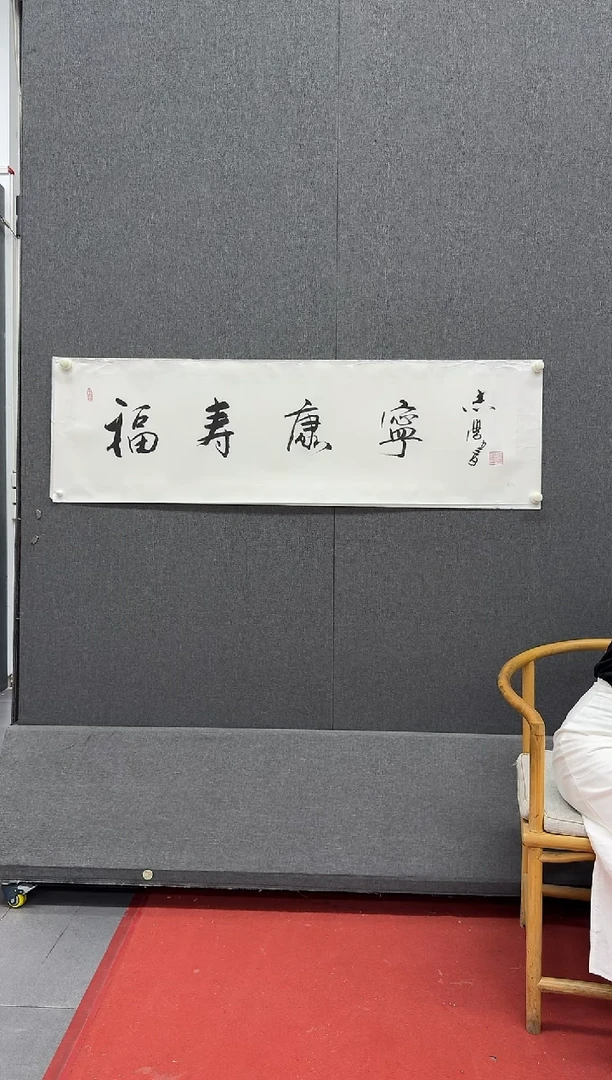 福寿康寧